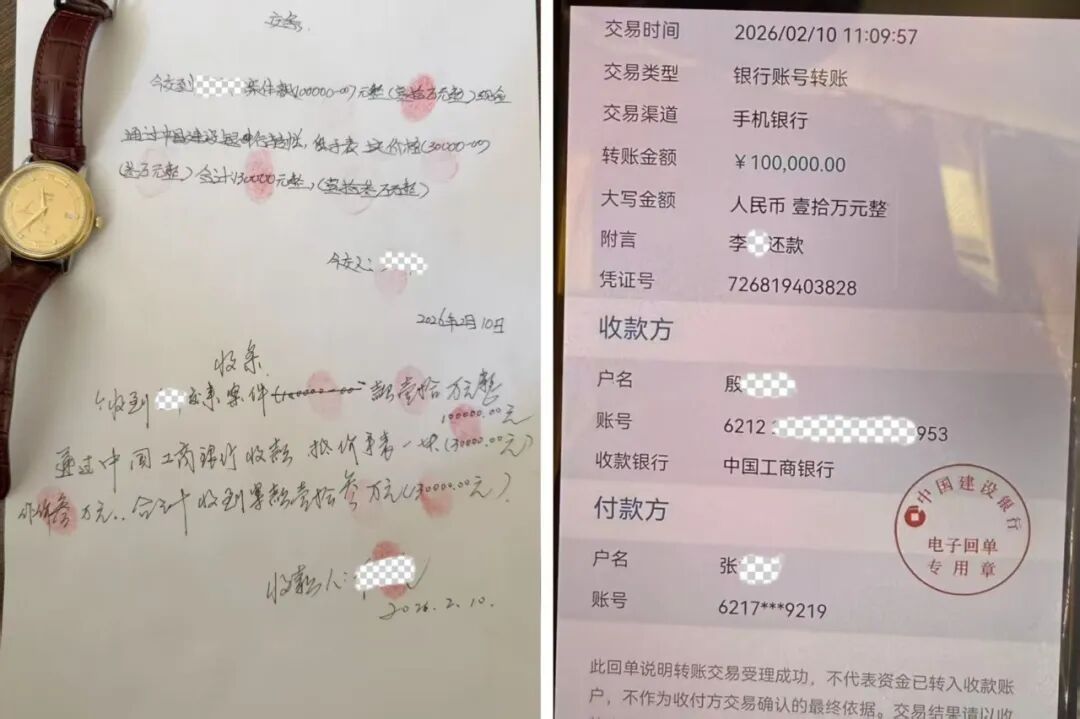 交条.
今交到 案件款(100000.00)元整(壹拾万元整)现金
通过中国建设银行转帐, 手表 定价值(30000.00)
(叁万元整)合计130000元整,(壹拾叁万元整)
今交人:
2026年2月10日
收条.
今收到 案件 款壹拾万元整
100000.00元
通过中国工商银行收款 抵价手表一块(30000.00元)
作价叁万元..合计收到案款壹拾叁万元(130000.00元).
收款人:
2026.2.10.
交易时间 2026/02/10 11:09:57
交易类型 银行账号转账
交易渠道 手机银行
转账金额 ¥100,000.00
大写金额 人民币 壹拾万元整
附言 李 还款
凭证号 726819403828
收款方
户名 殷
账号 6212 953
收款银行 中国工商银行
付款方
户名 张
账号 6217***9219
中国建设银行
电子回单
专用章
此回单说明转账交易受理成功，不代表资金已转入收款账
户，不作为收付方交易确认的最终依据。交易结果请以收